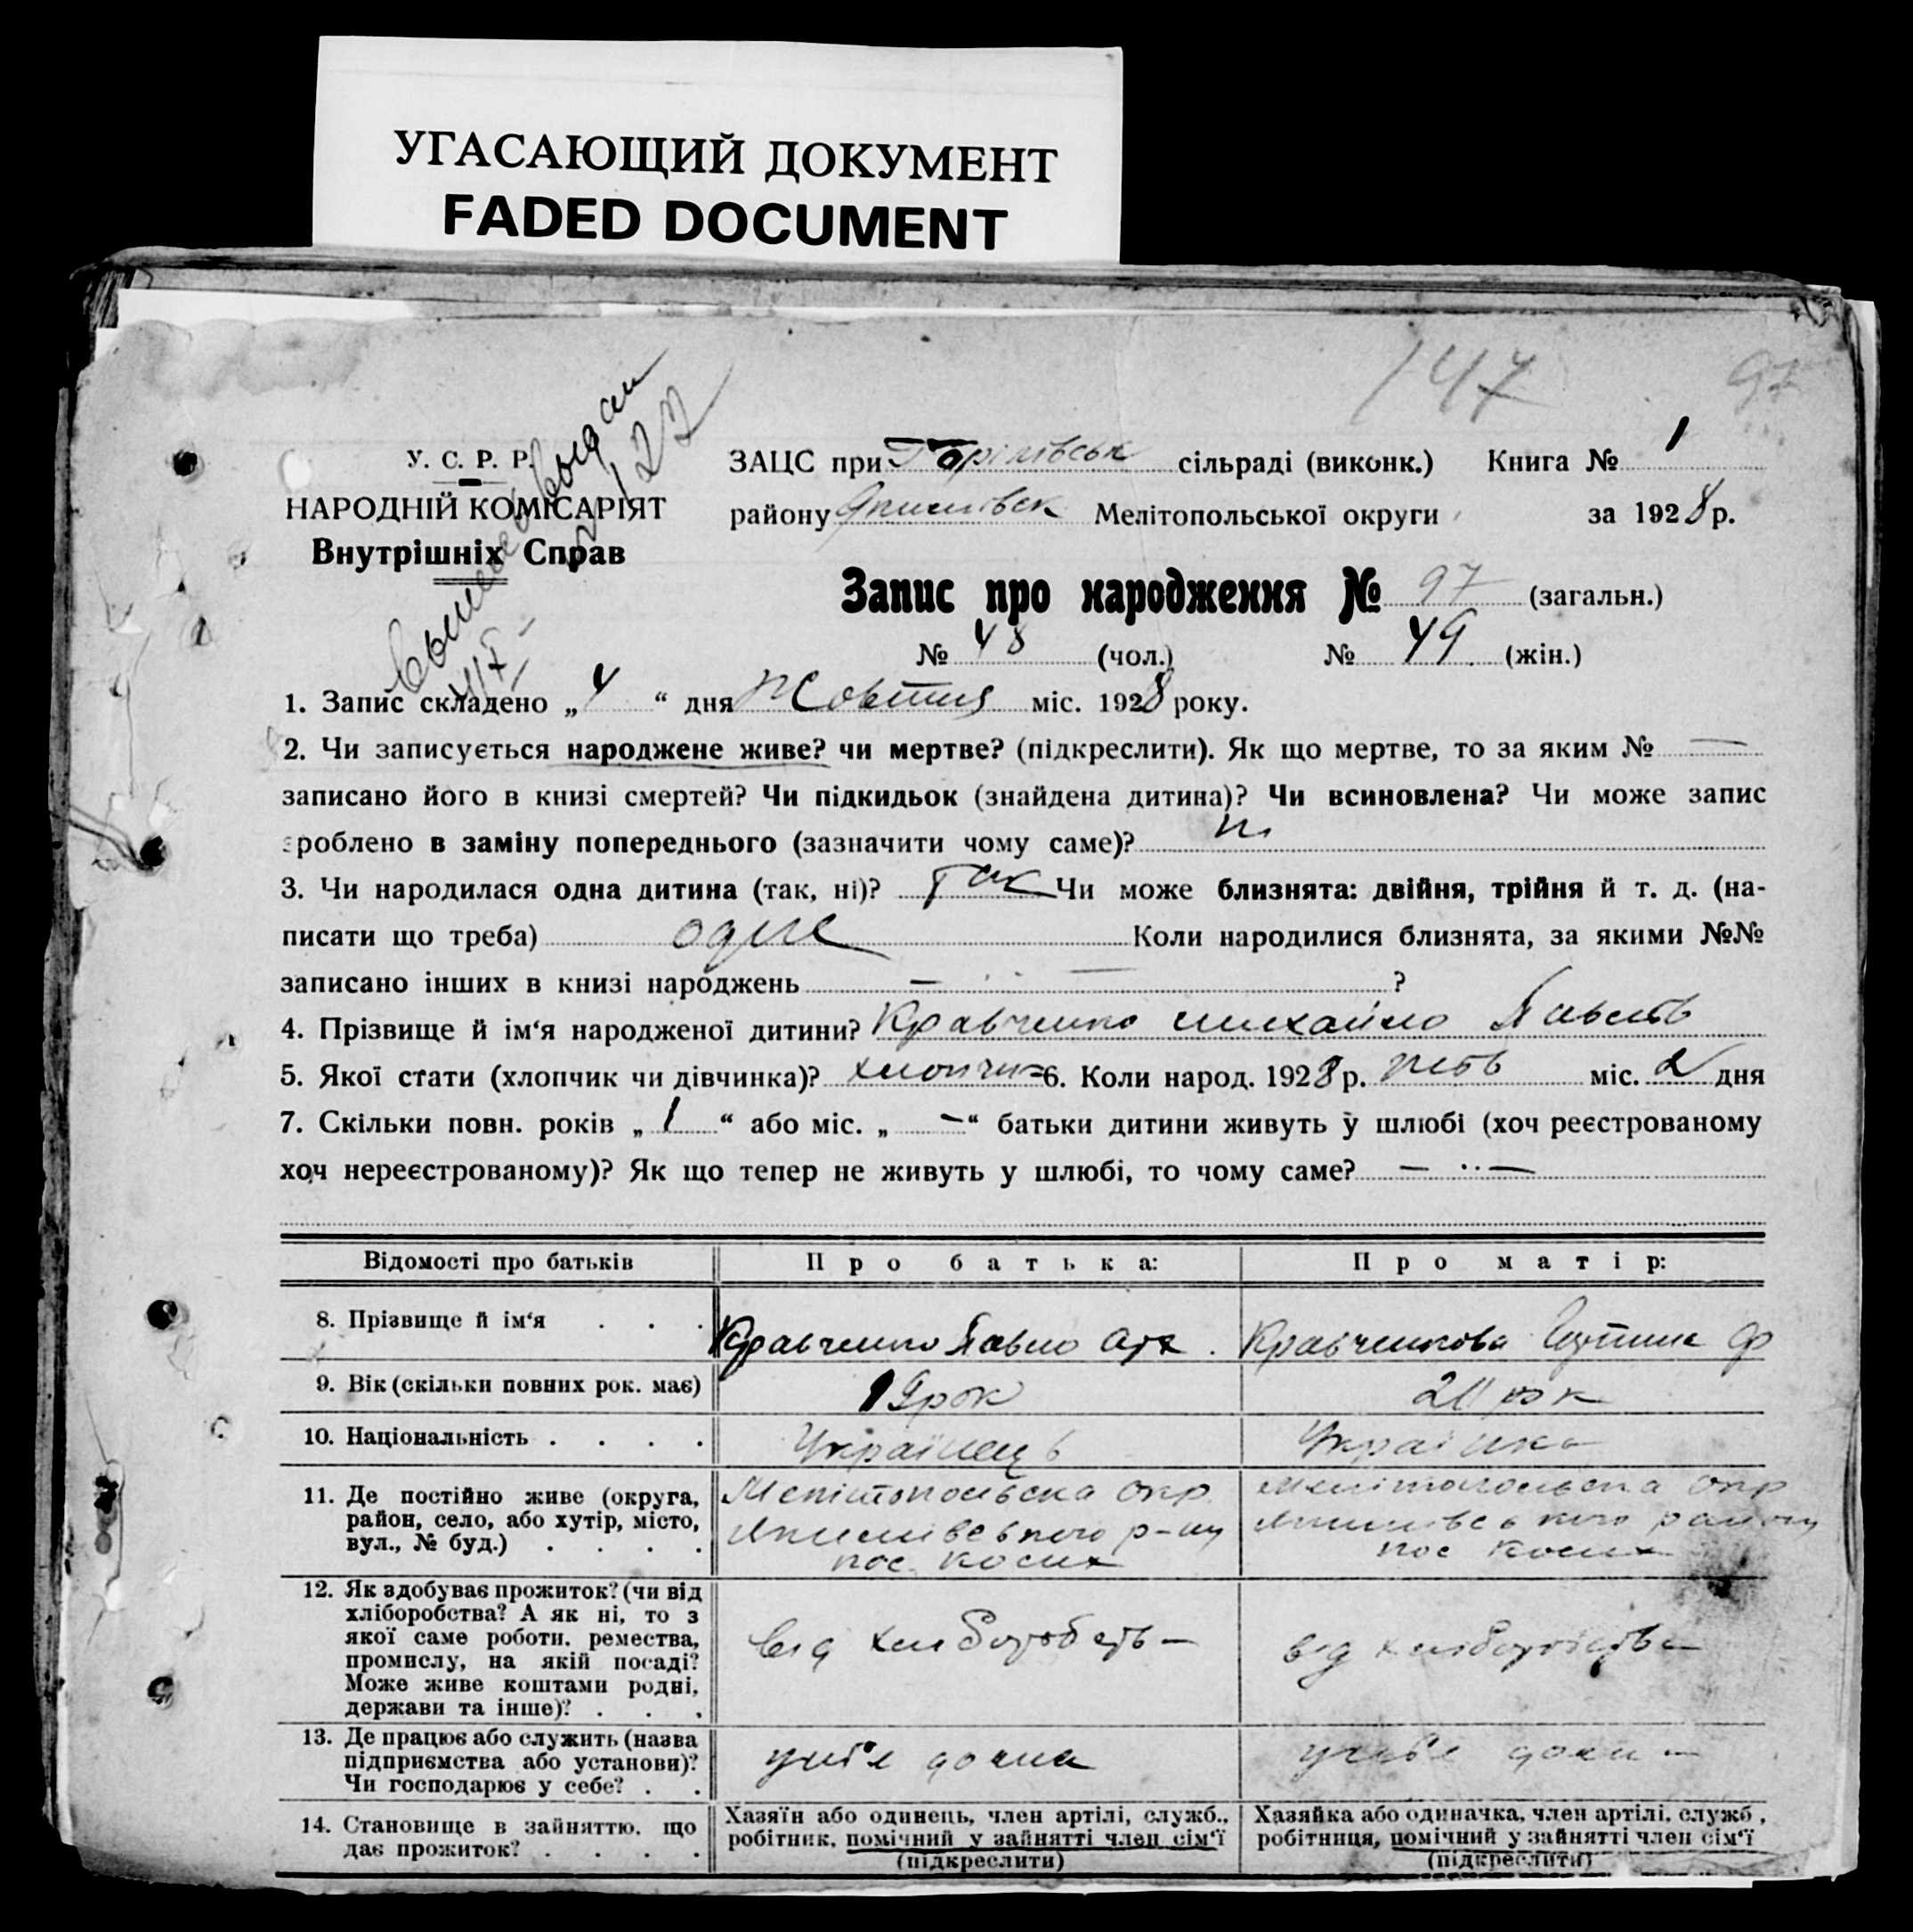 УГАСАЮЩИЙ ДОКУМЕНТ
FADED DOCUMENT
147 97
У. С. Р. Р.
НАРОДНІЙ КОМІСАРІЯТ
Внутрішніх Справ
ЗАЦС при сільраді (виконк.) Книга № 1
району Мелітопольської округи за 1928 р.
Запис про народження № 97 (загальн.)
№ 48 (чол.) № 49 (жін.)
1. Запис складено „4“ дня Жовтня міс. 1928 року.
2. Чи записується народжене живе? чи мертве? (підкреслити). Як що мертве, то за яким № —
записано його в книзі смертей? Чи підкидьок (знайдена дитина)? Чи всиновлена? Чи може запис
зроблено в заміну попереднього (зазначити чому саме)? ні
3. Чи народилася одна дитина (так, ні)? Так Чи може близнята: двійня, трійня й т. д. (на-
писати що треба) одне Коли народилися близнята, за якими №№
записано інших в книзі народжень — — ?
4. Прізвище й ім‘я народженої дитини? Кравченко Михайло Павлов
5. Якої стати (хлопчик чи дівчинка)? хлопчик 6. Коли народ. 1928 р. міс. 2 дня
7. Скільки повн. років „1“ або міс. „—“ батьки дитини живуть у шлюбі (хоч реєстрованому
хоч нереєстрованому)? Як що тепер не живуть у шлюбі, то чому саме? — —
Відомості про батьків Про батька: Про матір:
8. Прізвище й ім‘я . . . Кравченко Павло Кравченкова
9. Вік (скільки повних рок. має) 19 рок рок
10. Національність . . . . Українець Українка
11. Де постійно живе (округа, Мелітопольска Окр. Мелітопольска Окр
район, село, або хутір, місто, Якимівського р-ну Якимівського району
вул., № буд.) . . . . пос. Косих пос Косих
12. Як здобуває прожиток? (чи від
хліборобства? А як ні, то з
якої саме роботи, ремества, від хліборобств від хліборобства
промислу, на якій посаді?
Може живе коштами родні,
держави та інше)? . . .
13. Де працює або служить (назва
підприємства або установи)? у себе дома у себе дома
Чи господарює у себе? . .
14. Становище в зайняттю, що Хазяїн або одинець, член артілі, служб., Хазяйка або одиначка, член артілі, служб.,
дає прожиток? . . . . робітник, помічний у зайнятті член сім‘ї робітниця, помічний у зайнятті член сім‘ї
(підкреслити) (підкреслити)